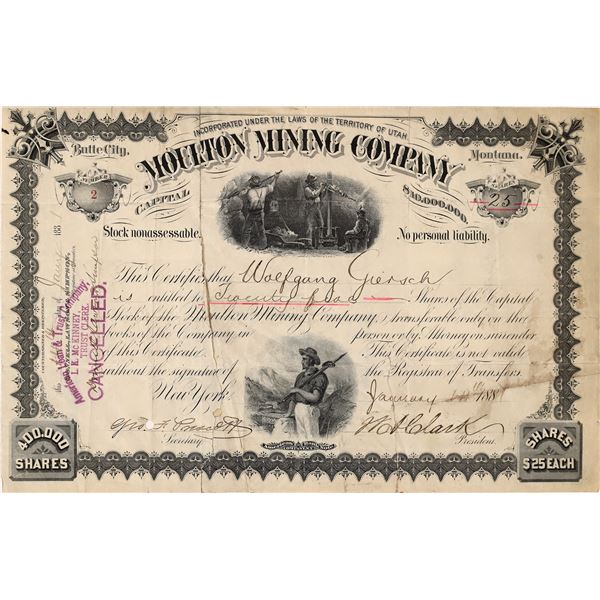 INCORPORATED UNDER THE LAWS OF THE TERRITORY OF UTAH
Butte City.
MOULTON MINING COMPANY
Montana.
NUMBER
2
CAPITAL
$10,000,000.
SHARES
25
Stock nonassessable.
No personal liability.
This Certifies that Wolfgang Giersch
is entitled to Twenty five Shares of the Capital
Stock of the Moulton Mining Company, transferable only on the
books of the Company in person or by Attorney on surrender
of this Certificate. This Certificate is not valid
without the signature of the Registrar of Transfers.
New York. January 1881
Secretary
W A Clark
President.
400,000
SHARES
SHARES
$25 EACH
L. E. McKINNEY,
TRUST CLERK.
CANCELLED.